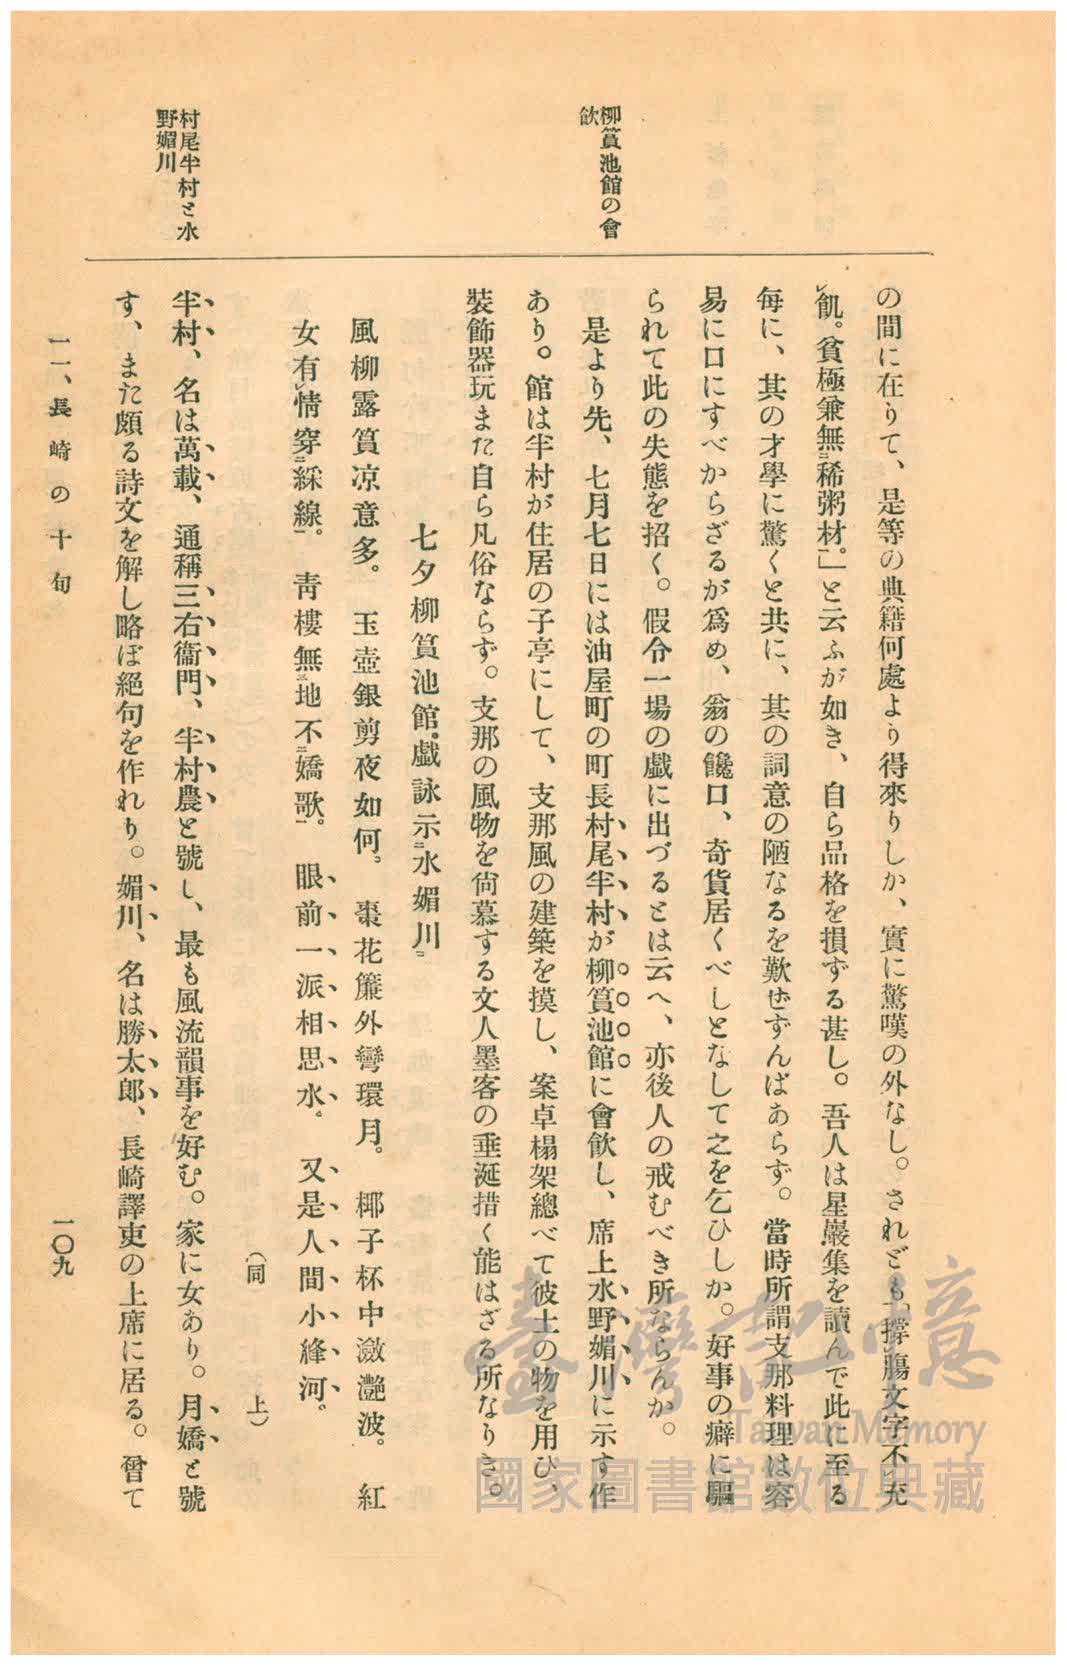 柳篔池館の會
飮
村尾半村と水
野媚川
の間に在りて、是等の典籍何處より得來りしか、實に驚嘆の外なし。されども「撐レ膓文字不レ充
レ飢。貧極兼無二稀粥材一。」と云ふが如き、自ら品格を損ずる甚し。吾人は星巖集を讀んで此に至る
每に、其の才學に驚くと共に、其の詞意の陋なるを歎せずんばあらず。當時所謂支那料理は容
易に口にすべからざるが爲め、翁の饞口、奇貨居くべしとなして之を乞ひしか。好事の癖に驅
られて此の失態を招く。假令一場の戲に出づるとは云へ、亦後人の戒むべき所ならんか。
是より先、七月七日には油屋町の町長村尾半村が柳篔池館に會飮し、席上水野媚川に示す作
あり。館は半村が住居の子亭にして、支那風の建築を摸し、案卓榻架總べて彼土の物を用ひ、
裝飾器玩また自ら凡俗ならず。支那の風物を尙慕する文人墨客の垂涎措く能はざる所なりき。
七夕柳篔池館。戲詠示二水媚川一
風柳露篔凉意多。玉壺銀剪夜如何。棗花簾外彎環月。椰子杯中瀲灧波。紅
女有レ情穿二綵線一。靑樓無三地不二嬌歌一。眼前一派相思水。又是人間小絳河。
（同　上）
半村、名は萬載、通稱三右衞門、半村農と號し、最も風流韻事を好む。家に女あり。月嬌と號
す、また頗る詩文を解し略ぼ絕句を作れり。媚川、名は勝太郞、長崎譯吏の上席に居る。嘗て
一一、長崎の十旬
一〇九
臺灣記憶
Taiwan Memory
國家圖書館數位典藏